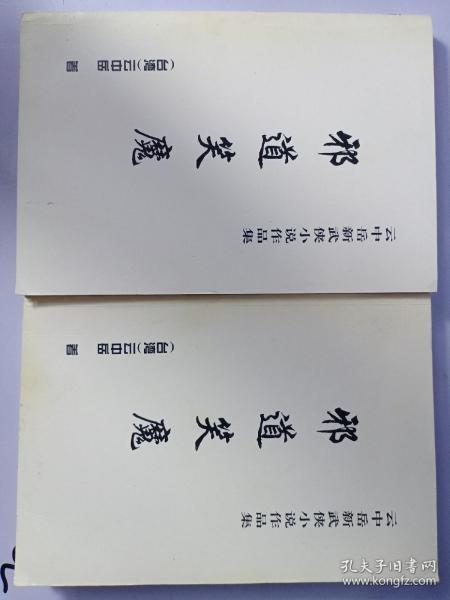 云中岳新武侠小说作品集
邪道笑魔
(台湾)云中岳 著
云中岳新武侠小说作品集
邪道笑魔
(台湾)云中岳 著
孔夫子旧书网
www.kongfz.com